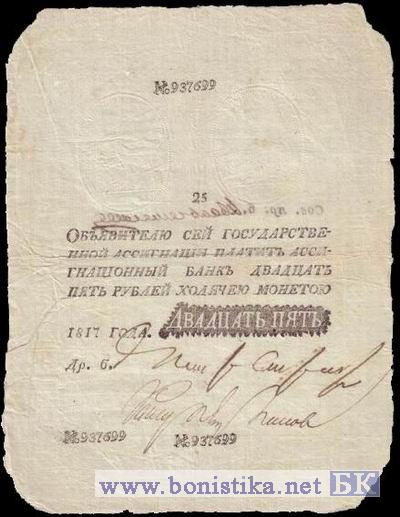 №937699
25
Сов. пр. б.
ОБЪЯВИТЕЛЮ СЕЙ ГОСУДАРСТВЕ-
ННОЙ АССИГНАЦІИ ПЛАТИТЪ АССИ-
ГНАЦІОННЫЙ БАНКЪ ДВАДЦАТЬ
ПЯТЬ РУБЛЕЙ ХОДЯЧЕЮ МОНЕТОЮ
1817 ГОДА. ДВАДЦАТЬ ПЯТЬ
Др. б.
№937699 №937699
www.bonistika.net БК